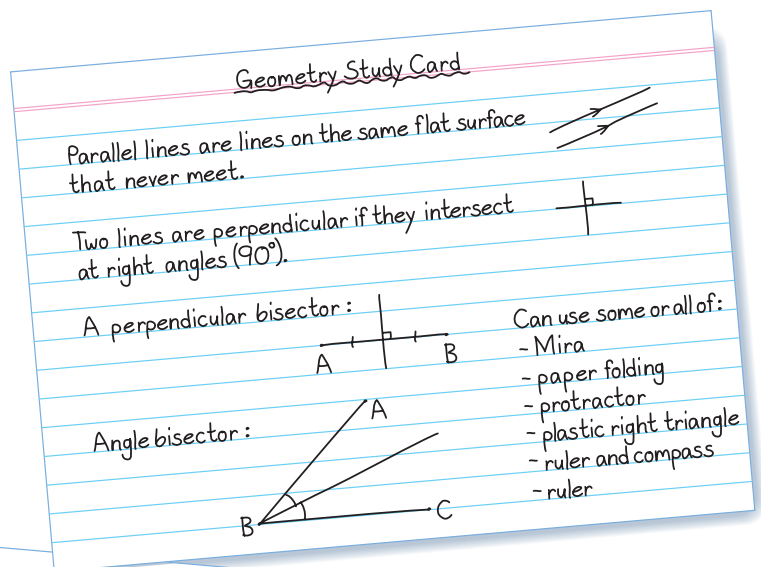 Geometry Study Card
Parallel lines are lines on the same flat surface
that never meet.
Two lines are perpendicular if they intersect
at right angles (90°).
A perpendicular bisector:
A
B
Can use some or all of:
- Mira
- paper folding
- protractor
- plastic right triangle
- ruler and compass
- ruler
Angle bisector:
A
B
C